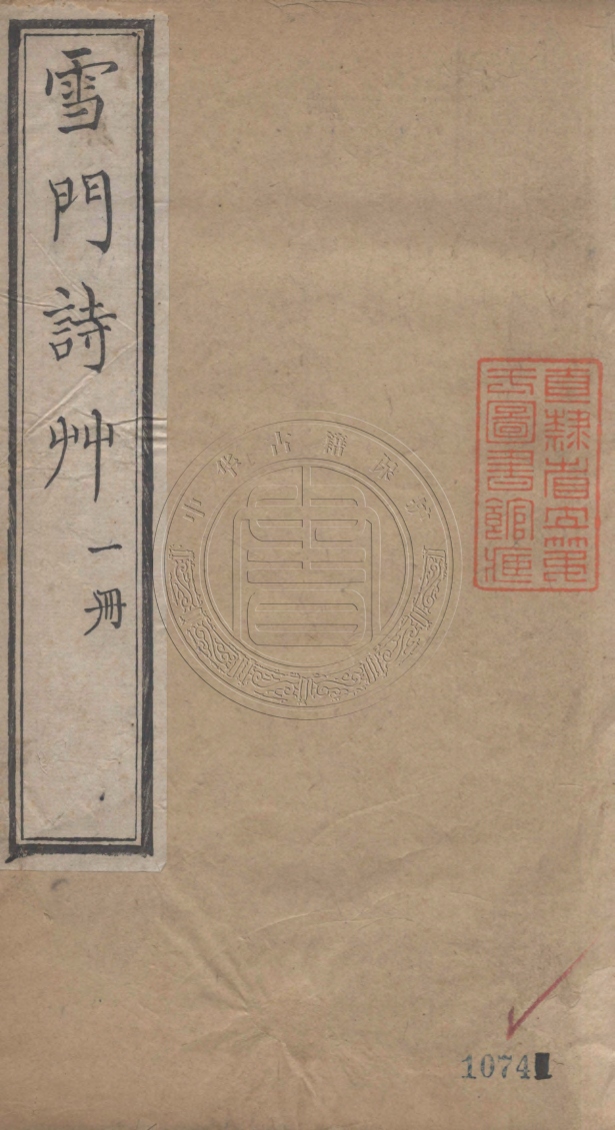 雪門詩艸
一冊
直隸省立第
一圖書館藏
中华古籍保护
1074